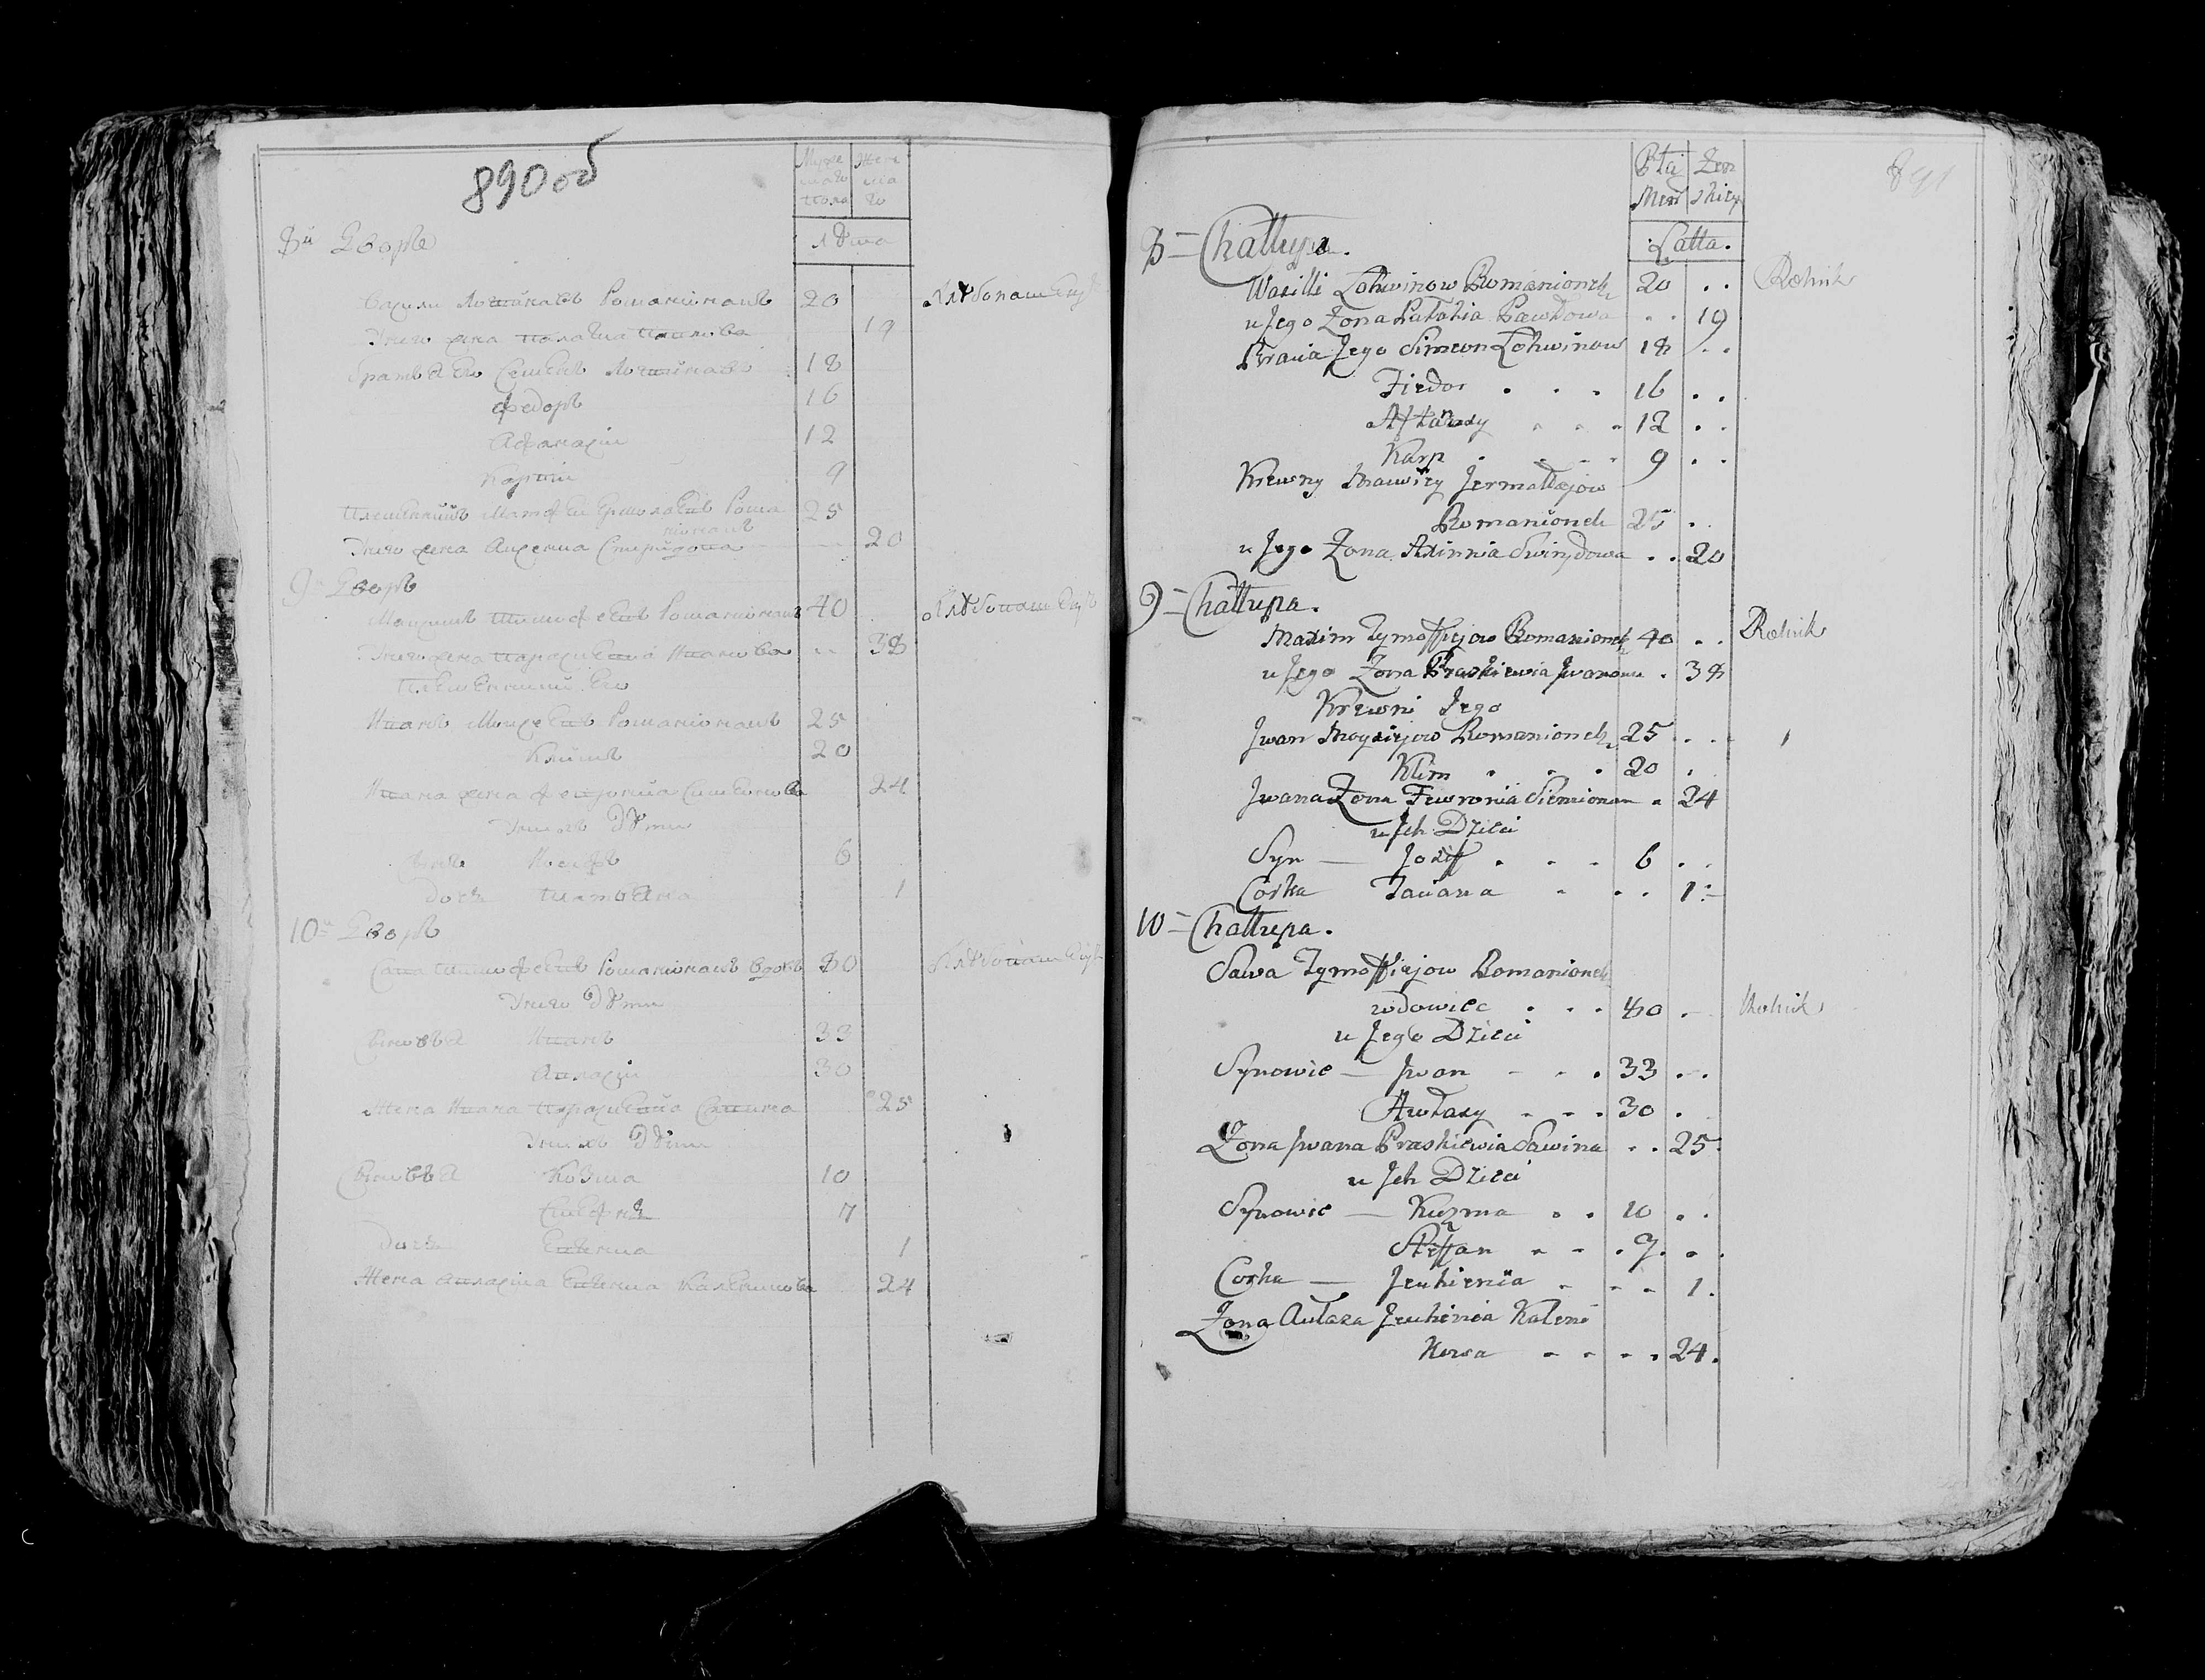 890 об
Муже Жен
скаго ска
пола го
лѣта
8й Дворъ
Василій Логвиновъ Романіонакъ 20 Хлѣбопашецъ
У него жена Палагиа Павлова 19
Братья Его Семенъ Логвиновъ 18
Федоръ 16
Афанасіи 12
Карпъ 9
Племенникъ Матфеи Ермолаевъ Рома 25
ніонакъ
У него жена Аксениа Спиридона 20
9й Дворъ
Максимъ Тимофеевъ Романіонакъ 40 Хлѣбопашецъ
У него жена Параскевиа Иванова 38
Племенники Его
Иванъ Моисеевъ Романіонакъ 25
Климъ 20
Ивана жена Февроніа Симеонова 24
У нихъ Дѣти
Сынъ Иосифъ 6
Дочь Татьяна 1
10й Дворъ
Сава Тимофеевъ Романіонакъ вдовъ 80 Хлѣбопашецъ
У него Дѣти
Сыновья Иванъ 33
Авласіи 30
Жена Ивана Параскевиа Савина 25
У нихъ Дѣти
Сыновья Козма 10
7
Дочь Евгениа 1
Жена Авласіиа Евгениа Каленикова 24
891
Płci Żen
Men skiey
Latta.
8 Chałłupa.
Wasilli Łohwinow Romanionek 20 Rolnik
u Jego Żona Pałahia Pawłowa 19
Bracia Jego Simeon Łohwinow 18
Fiedor 16
Affanasy 12
Karp 9
Krewny Mawiey Jermołłajow
Romanionek 25
u Jego Żona Axinnia Swirydowa 20
9 Chałłupa.
Maxim Tymoffiejow Romanionek 40 Rolnik
u Jego Żona Praskiewia Jwanowa 38
Krewni Jego
Jwan Moysiejow Romanionek 25
Klim 20
Jwana Żona Fewronia Siemionowa 24
u Jch Dzieci
Syn — Joziff 6
Corka Taciana 1
10 Chałłupa.
Sawa Tymoffiejow Romanionek
wdowiec 80 Rolnik
u Jego Dzieci
Synowie — Jwan 33
Awłasy 30
Żona Jwana Praskiewia Sawina 25
u Jch Dzieci
Synowie — Kuzma 10
Steffan 7
Corka — Jeuhienia 1
Żona Aułasa Jeuhienia Kaleni
Kowa 24